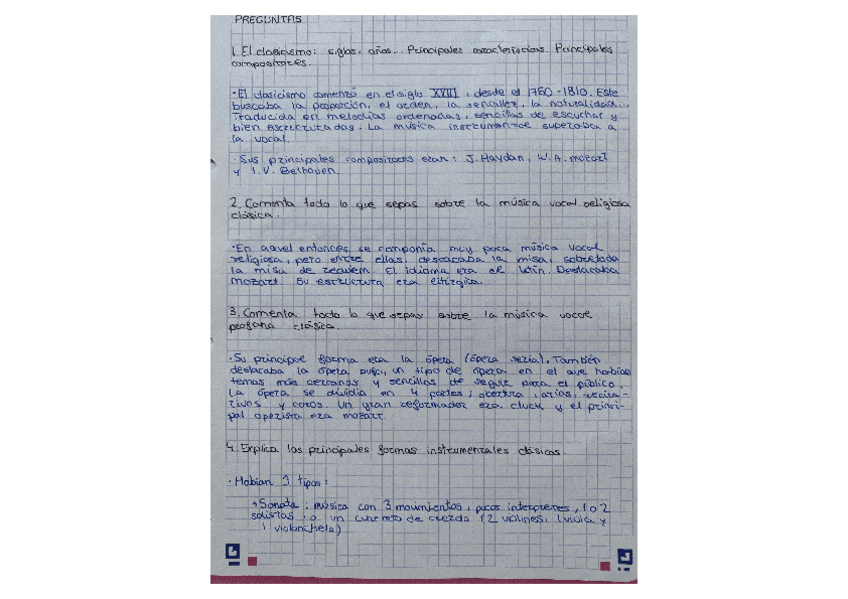 PREGUNTAS
1. El clasicismo: siglos, años. Principales características. Principales
compositores.
·El clasicismo comenzó en el siglo XVIII, desde el 1750-1810. Este
buscaba la proporción, el orden, la sencillez, la naturalidad...
Traducida en melodías ordenadas, sencillas de escuchar y
bien estructuradas. La música instrumental superaba a
la vocal.
·Sus principales compositores eran: J. Haydan, W. A. mozart
y L.V. Bethoven.
2. Comenta todo lo que sepas sobre la música vocal religiosa
clásica.
·En aquel entonces, se componía muy poca música vocal
religiosa, pero entre ellas, destacaba la misa, sobretodo
la misa de requiem. El idioma era el latín. Destacaba
mozart. Su estructura era litúrgica.
3. Comenta todo lo que sepas sobre la música vocal
profana clásica.
·Su principal forma era la ópera (ópera seria). También
destacaba la ópera bufa, un tipo de ópera en el que habían
temas más cercanos y sencillas de seguir para el público.
La ópera se dividía en 4 partes; obertura, arias, recita-
tivos y coros. Un gran reformador era Gluck y el princi-
pal operista era mozart.
4. Explica las principales formas instrumentales clásicas.
·Habían 3 tipos:
→Sonata: música con 3 movimientos, pocos interpretes, 1 o 2
solistas o un cuarteto de cuerda (2 violines, 1 viola y
1 violonchelo)